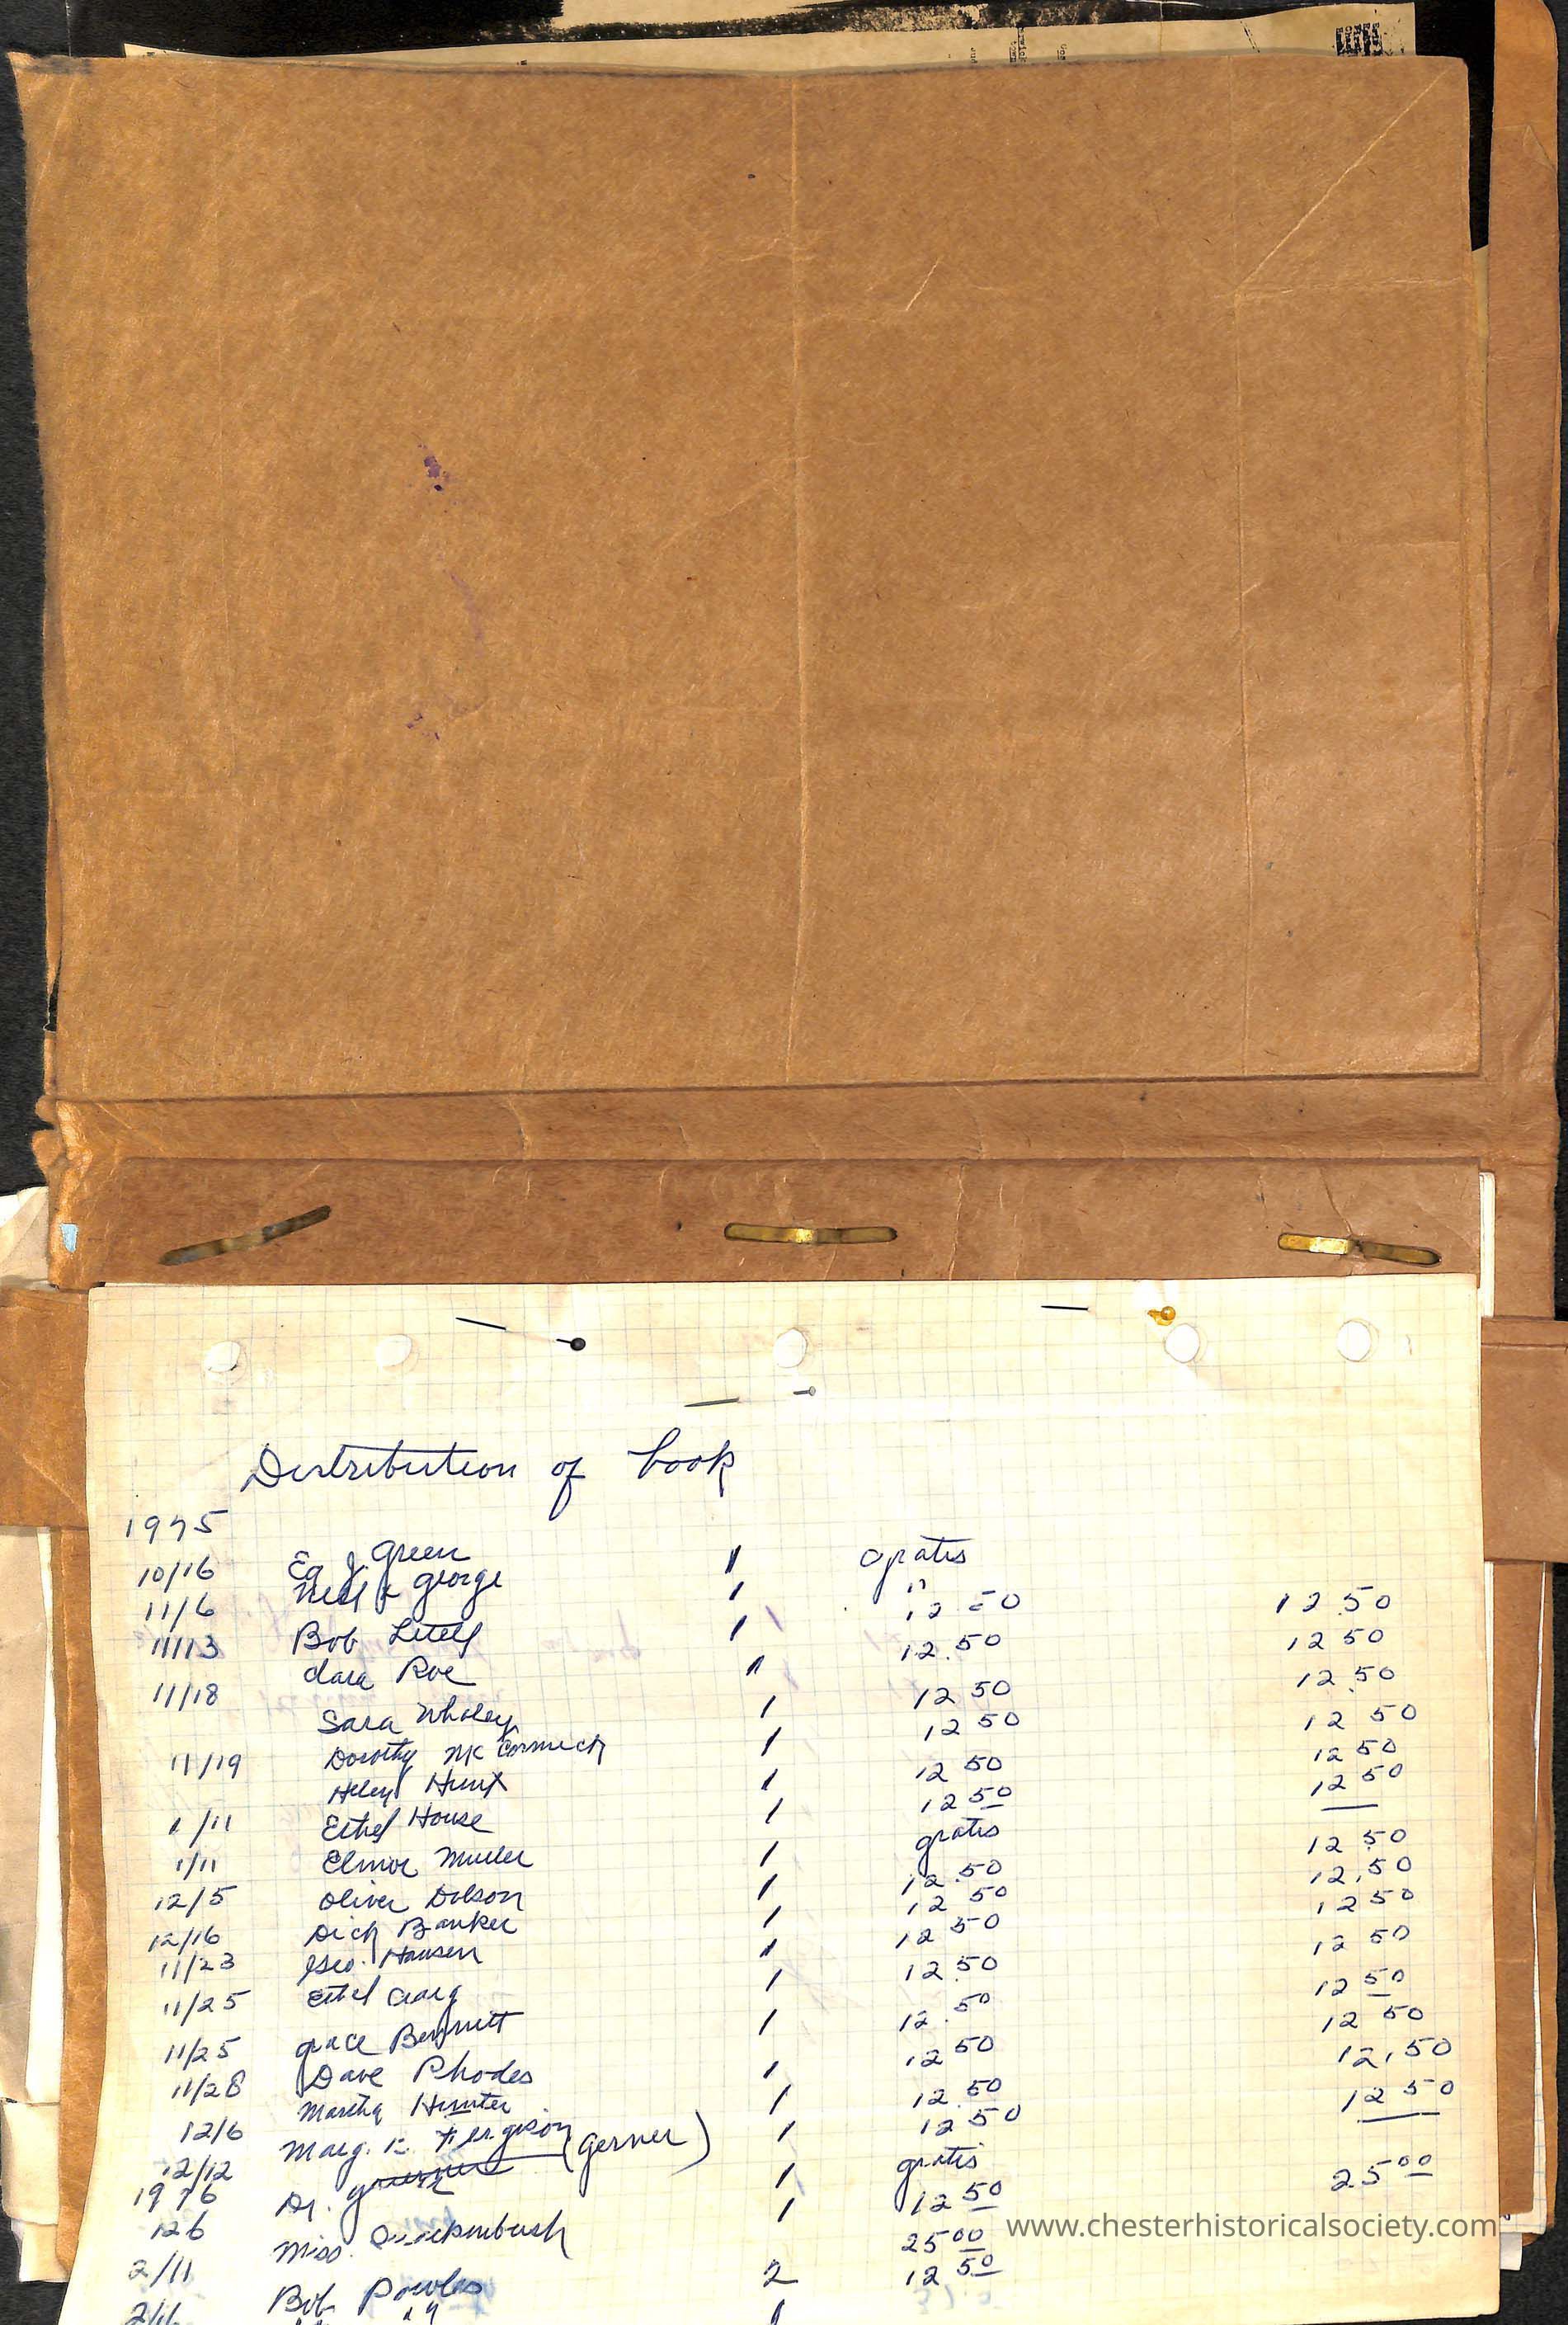 Distribution of book
1975
10/16 Ed J. Green 1 gratis
11/6 Neil & George 1 "
11/13 Bob Litell 1 12 50 12 50
Clara Roe 1 12.50 12 50
11/18 Sara Whaley 1 12 50 12.50
11/19 Dorothy McCormick 1 12 50 12 50
Helen Hunt 1 12 50 12 50
1/11 Ethel House 1 12 50 12 50
1/11 Elinor Muller 1 gratis
12/5 Oliver Dolson 1 12.50 12 50
12/16 Dick Banker 1 12 50 12,50
11/23 Geo. Hansen 1 12 50 12 50
11/25 Ethel Craig 1 12 50 12 50
11/25 Grace Bennett 1 12.50 12 50
11/28 Dave Rhodes 1 12 50 12 50
12/6 Martha Hunter 1 12.50 12,50
12/12 Marg. Ferguson (Gerner) 1 12 50 12 50
1976 Dr. 1 gratis
126 Miss. Quackenbush 1 12 50
2/11 Bob Powles 2 25 00 25 00
2/16 " " 1 12 50
www.chesterhistoricalsociety.com